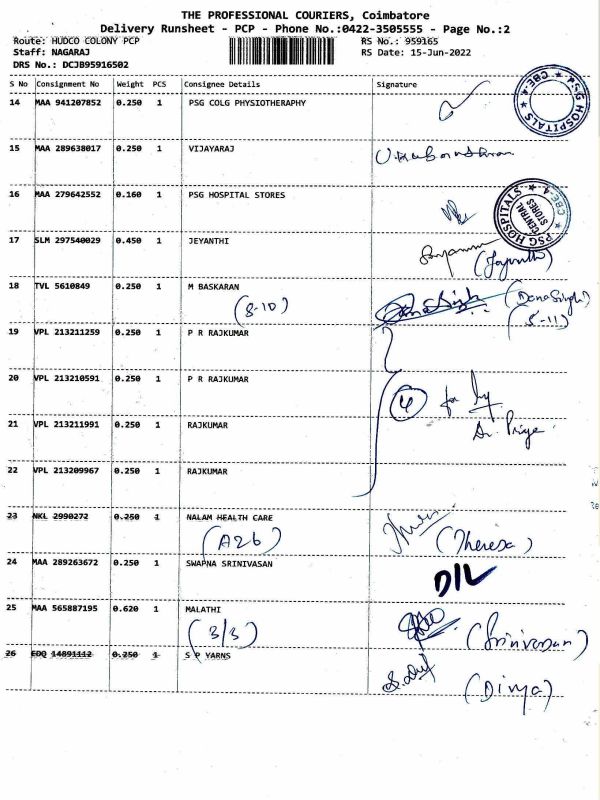 THE PROFESSIONAL COURIERS, Coimbatore
Delivery Runsheet - PCP - Phone No.:0422-3505555 - Page No.:2
Route: HUDCO COLONY PCP RS No.: 959165
Staff: NAGARAJ RS Date: 15-Jun-2022
DRS No.: DCJB95916502
S No Consignment No Weight PCS Consignee Details Signature
14 MAA 941207852 0.250 1 PSG COLG PHYSIOTHERAPHY
PSG HOSPITALS CBE-4
15 MAA 289638017 0.250 1 VIJAYARAJ
16 MAA 279642552 0.160 1 PSG HOSPITAL STORES
PSG HOSPITALS CBE-4
CENTRAL STORES
17 SLM 297540029 0.450 1 JEYANTHI
18 TVL 5610849 0.250 1 M BASKARAN
(8-10) (DanaSingh)
19 VPL 213211259 0.250 1 P R RAJKUMAR
20 VPL 213210591 0.250 1 P R RAJKUMAR
(4)
21 VPL 213211991 0.250 1 RAJKUMAR
Dr. Priya
22 VPL 213209967 0.250 1 RAJKUMAR
23 NKL 2990272 0.250 1 NALAM HEALTH CARE
(A26) (Theresa)
24 MAA 289263672 0.250 1 SWAPNA SRINIVASAN
D/L
25 MAA 565887195 0.620 1 MALATHI
(3/3) (Srinivasan)
26 EDQ 14891112 0.250 1 S P YARNS
(Divya)